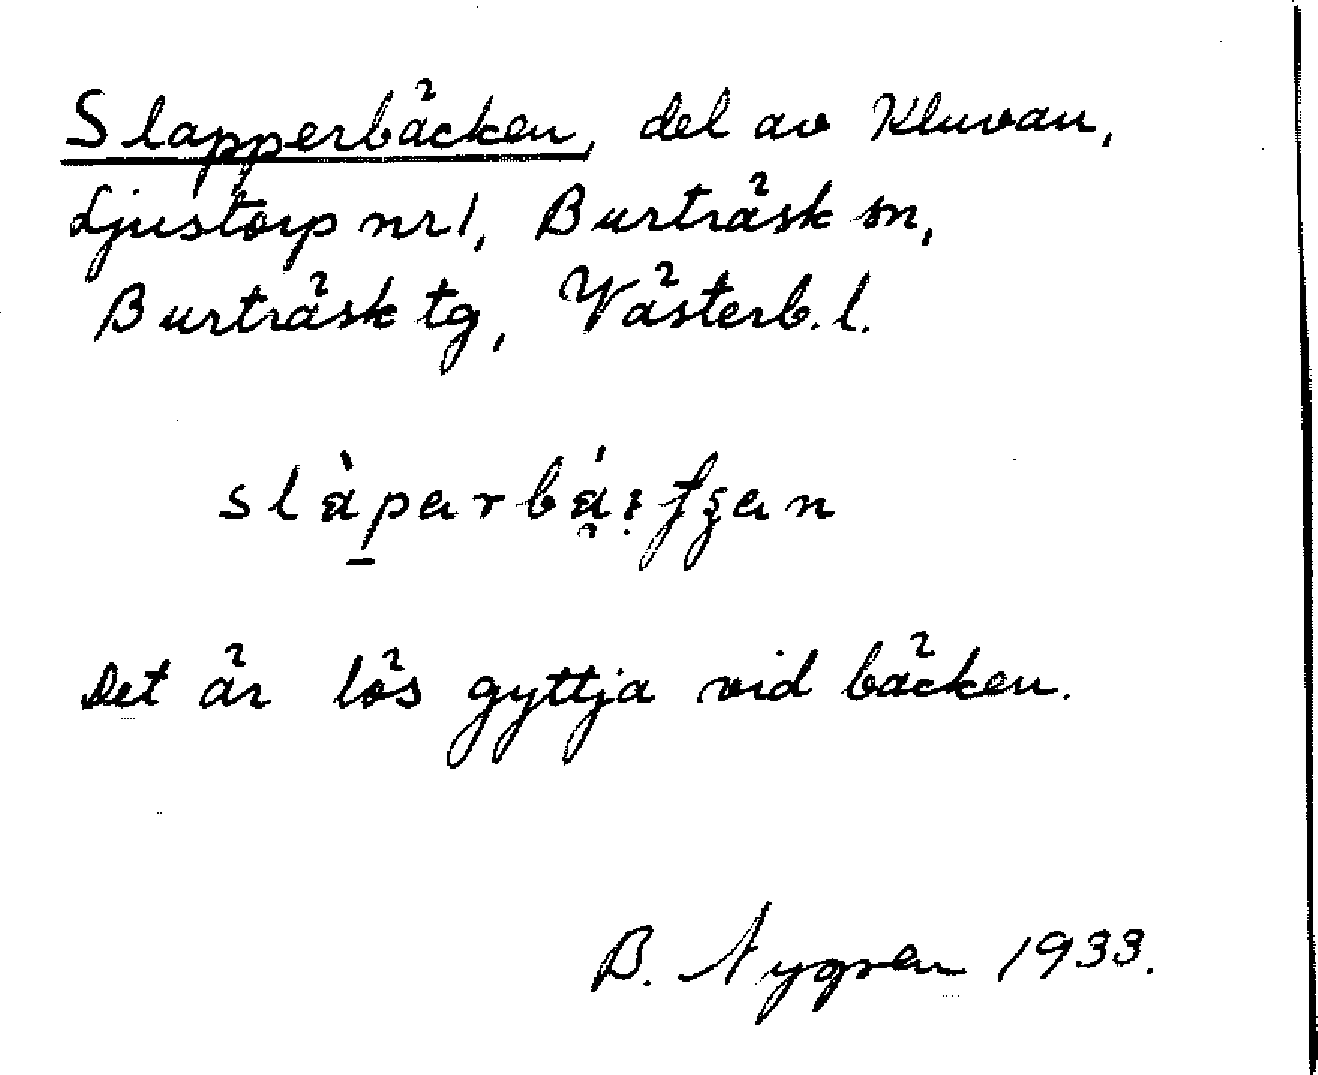 Slapperbäcken, del av Kluvan,
Ljustorp nr 1, Burträsk sn,
Burträsk tg, Västerb. l.
Det är lös gyttja vid bäcken.
B. Nygren 1933.